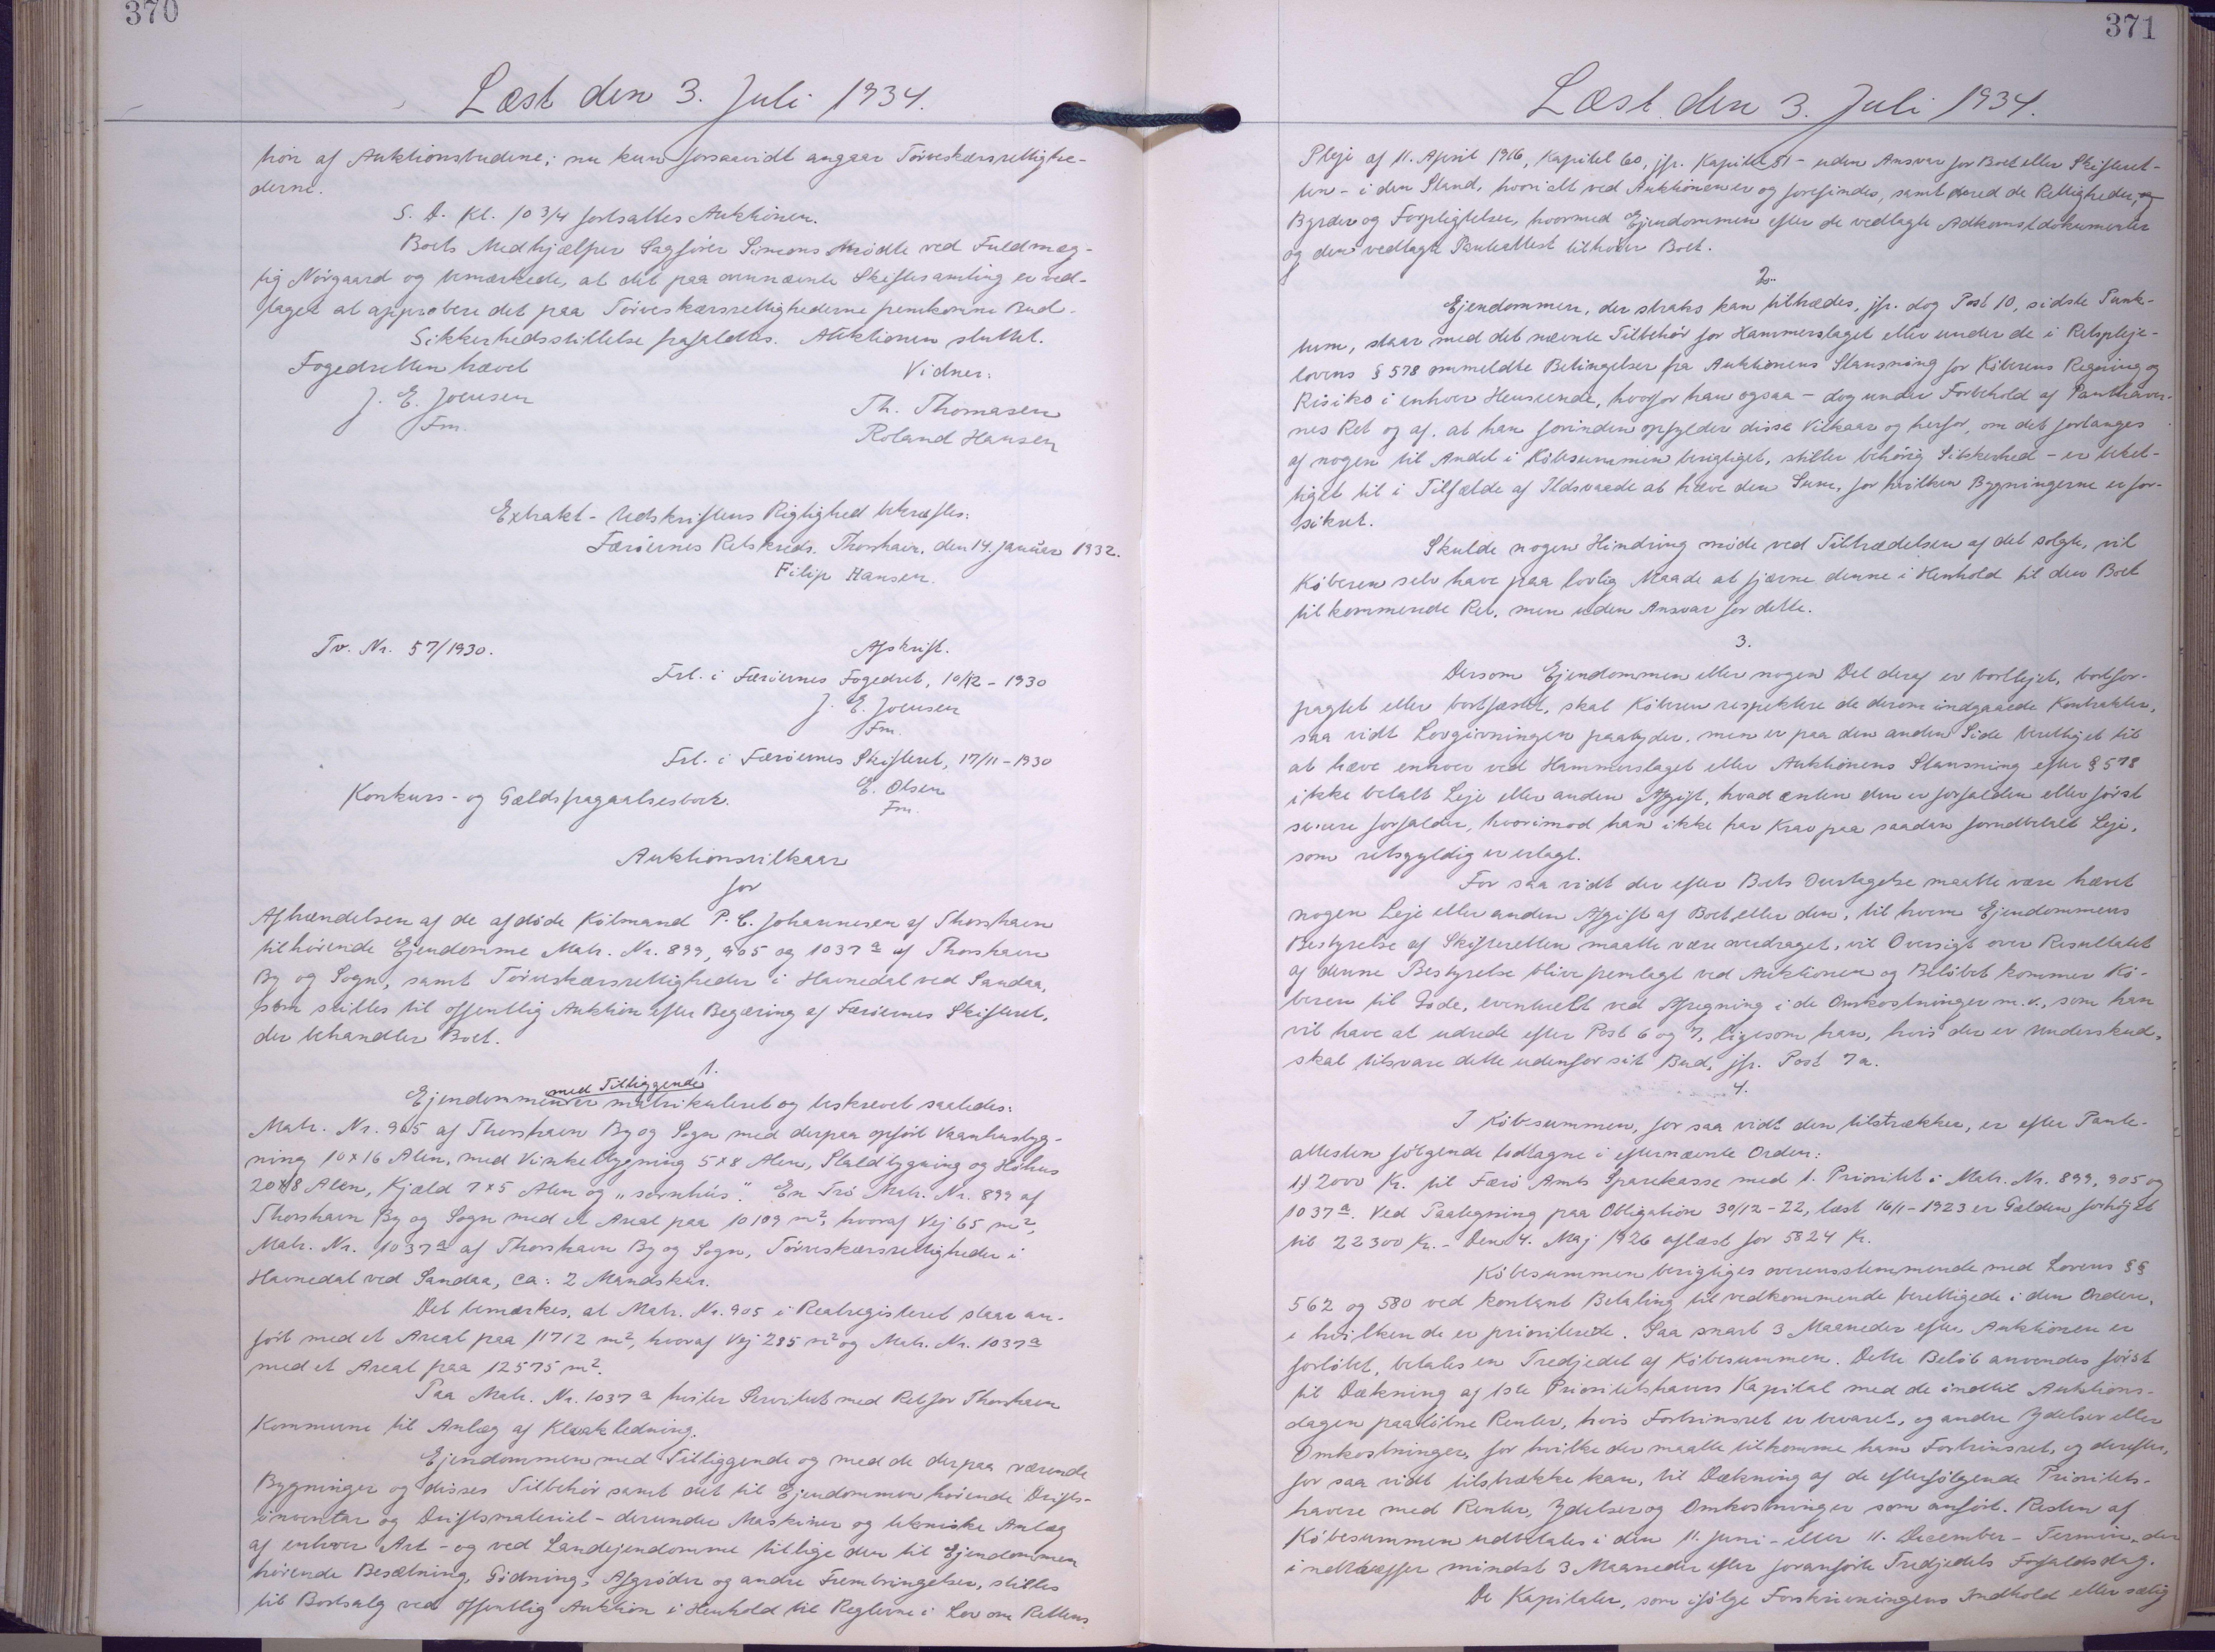 370
Læst den 3. Juli 1934.
hön af Auktionsbudene; nu kun forsaavidt angaar Törveskærsrettighe-
derne.
S. D. Kl. 10 3/4 fortsattes Auktionen.
Boets Medhjælper Sagförer Simons mödte ved Fuldmæg-
tig Nörgaard og bemærkede, at det paa ovennævnte Skiftesamling er ved-
taget at approbere det paa Törveskærsrettighederne fremkomne Bud.
Sikkerhedsstillelse frafaldtes. Auktionen sluttet.
Fogedretten hævet
Vidner:
J. E. Joensen
Fm.
Th. Thomasen
Roland Hansen
Extrakt-Udskriftens Rigtighed bekræftes:
Færöernes Retskreds. Thorshavn, den 14. Januar 1932.
Filip Hansen.
Tv. Nr. 57/1930.
Afskrift.
Frl. i Færöernes Fogedret, 10/12 - 1930
J. E. Joensen
Fm.
Frl. i Færöernes Skifteret, 17/11 - 1930
Konkurs- og Gældsfragaaelsesboer.
E. Olsen
Fm.
Auktionsvilkaar
for
Afhændelsen af de afdöde Köbmand P. C. Johannesen af Thorshavn
tilhörende Ejendomme Matr. Nr. 899, 905 og 1037 a af Thorshavn
By og Sogn, samt Törveskærsrettigheder i Havnedal ved Sandaa,
som stilles til offentlig Auktion efter Begæring af Færöernes Skifteret,
der behandler Boet.
1.
med Tilliggende
Ejendommen er matrikuleret og beskrevet saaledes:
Matr. Nr. 905 af Thorshavn By og Sogn med derpaa opfört Vaanhusbyg-
ning 10 x 16 Alen, med Vinkelbygning 5 x 8 Alen, Staldbygning og Höhus
20 x 8 Alen, Kjæld 7 x 5 Alen og "sornhús". En Trö Matr. Nr. 899 af
Thorshavn By og Sogn med et Areal paa 10109 m², hvoraf Vej 65 m²,
Matr. Nr. 1037 a af Thorshavn By og Sogn, Törveskærsrettigheder i
Havnedal ved Sandaa, ca: 2 Mandskur.
Det bemærkes, at Matr. Nr. 905 i Realregisteret staar an-
fört med et Areal paa 11712 m², hvoraf Vej 285 m² og Matr. Nr. 1037 a
med et Areal paa 12575 m².
Paa Matr. Nr. 1037 a hviler Servitut med Ret for Thorshavn
Kommune til Anlæg af Kloakledning.
Ejendommen med Tilliggende og med de derpaa værende
Bygninger og disses Tilbehör samt det til Ejendommen hörende Drifts-
inventar og Driftsmateriel - derunder Maskiner og tekniske Anlæg
af enhver Art - og ved Landejendomme tillige den til Ejendommen
hörende Besætning, Gödning, Afgröder og andre Frembringelser, stilles
til Bortsalg ved offentlig Auktion i Henhold til Reglerne i Lov om Rettens
371
Læst den 3. Juli 1934.
Pleje af 11. April 1916, Kapitel 60, jfr. Kapitel 51 - uden Ansvar for Boet eller Skifteret-
ten - i den Stand, hvori alt ved Auktionen er og forefindes, samt med de Rettigheder, og
Byrder og Forpligtelser, hvormed Ejendommen efter de vedlagte Adkomstdokumenter
og den vedlagte Panteattest tilhörer Boet.
2.
Ejendommen, der straks kan tiltrædes, jfr. dog Post 10, sidste Punk-
tum, staar med det nævnte Tilbehör for Hammerslaget eller under de i Retspleje-
lovens § 578 ommeldte Betingelser fra Auktionens Slutning for Köberens Regning og
Risiko i enhver Henseende, hvorfor han ogsaa - dog under Forbehold af Panthaver-
nes Ret og af, at han forinden opfylder disse Vilkaar og herfor, om det forlanges
af nogen til Andel i Köbesummen berettiget, stiller behörig Sikkerhed - er beret-
tiget til i Tilfælde af Ildsvaade at hæve den Sum, for hvilken Bygningerne er for-
sikret.
Skulde nogen Hindring möde ved Tiltrædelsen af det solgte, vil
Köberen selv have paa lovlig Maade at fjærne denne i Henhold til den Boet
tilkommende Ret, men uden Ansvar for dette.
3.
Dersom Ejendommen eller nogen Del deraf er bortlejet, bortfor-
pagtet eller bortfæstet, skal Köberen respektere de derom indgaaede Kontrakter,
saa vidt Lovgivningen paabyder, men er paa den anden Side berettiget til
at hæve enhver ved Hammerslaget eller Auktionens Slutning efter § 578
ikke betalt Leje eller anden Afgift, hvad enten den er forfalden eller först
senere forfalder, hvorimod han ikke har Krav paa saadan forudbetalt Leje,
som retsgyldig er erlagt.
For saa vidt der efter Boets Overtagelse maatte være hævet
nogen Leje eller anden Afgift af Boet eller den, til hvem Ejendommens
Bestyrelse af Skifteretten maatte være overdraget, vil Oversigt over Resultatet
af denne Bestyrelse blive fremlagt ved Auktionen og Belöbet kommer Kö-
beren til Gode, eventuelt ved Afregning i de Omkostninger m. v., som han
vil have at udrede efter Post 6 og 7, ligesom han, hvis der er Underskud,
skal tilsvare dette udenfor sit Bud, jfr. Post 7a.
4.
I Köbesummen, for saa vidt den tilstrækker, er efter Pante-
attesten fölgende lodtagne i efternævnte Orden:
1) 2000 Kr. til Færö Amts Sparekasse med 1. Prioritet i Matr. Nr. 899, 905 og
1037 a. Ved Paategning paa Obligation 30/12-22, læst 16/1-1923 er Gælden forhöjet
til 22300 Kr. - Den 4. Maj 1926 aflæst for 5824 Kr.
Köbesummen berigtiges overensstemmende med Lovens §§
562 og 580 ved kontant Betaling til vedkommende berettigede i den Orden,
i hvilken de er prioriterede. Saa snart 3 Maaneder efter Auktionen er
forlöbet, betales en Tredjedel af Köbesummen. Dette Belöb anvendes först
til Dækning af 1ste Prioritetshavers Kapital med de indtil Auktions-
dagen paalöbne Renter, hvis Fortrinsret er bevaret, og andre Ydelser eller
Omkostninger, for hvilke der maatte tilkomme ham Fortrinsret, og derefter,
for saa vidt tilstrække kan, til Dækning af de efterfölgende Prioritets-
havere med Renter, Ydelser og Omkostninger som anfört. Resten af
Köbesummen udbetales i den 11. Juni- eller 11. December-Termin, der
indtræffer mindst 3 Maaneder efter foranförte Tredjedels Forfaldsdag.
De Kapitaler, som ifölge Forskrivningens Indhold eller særlig